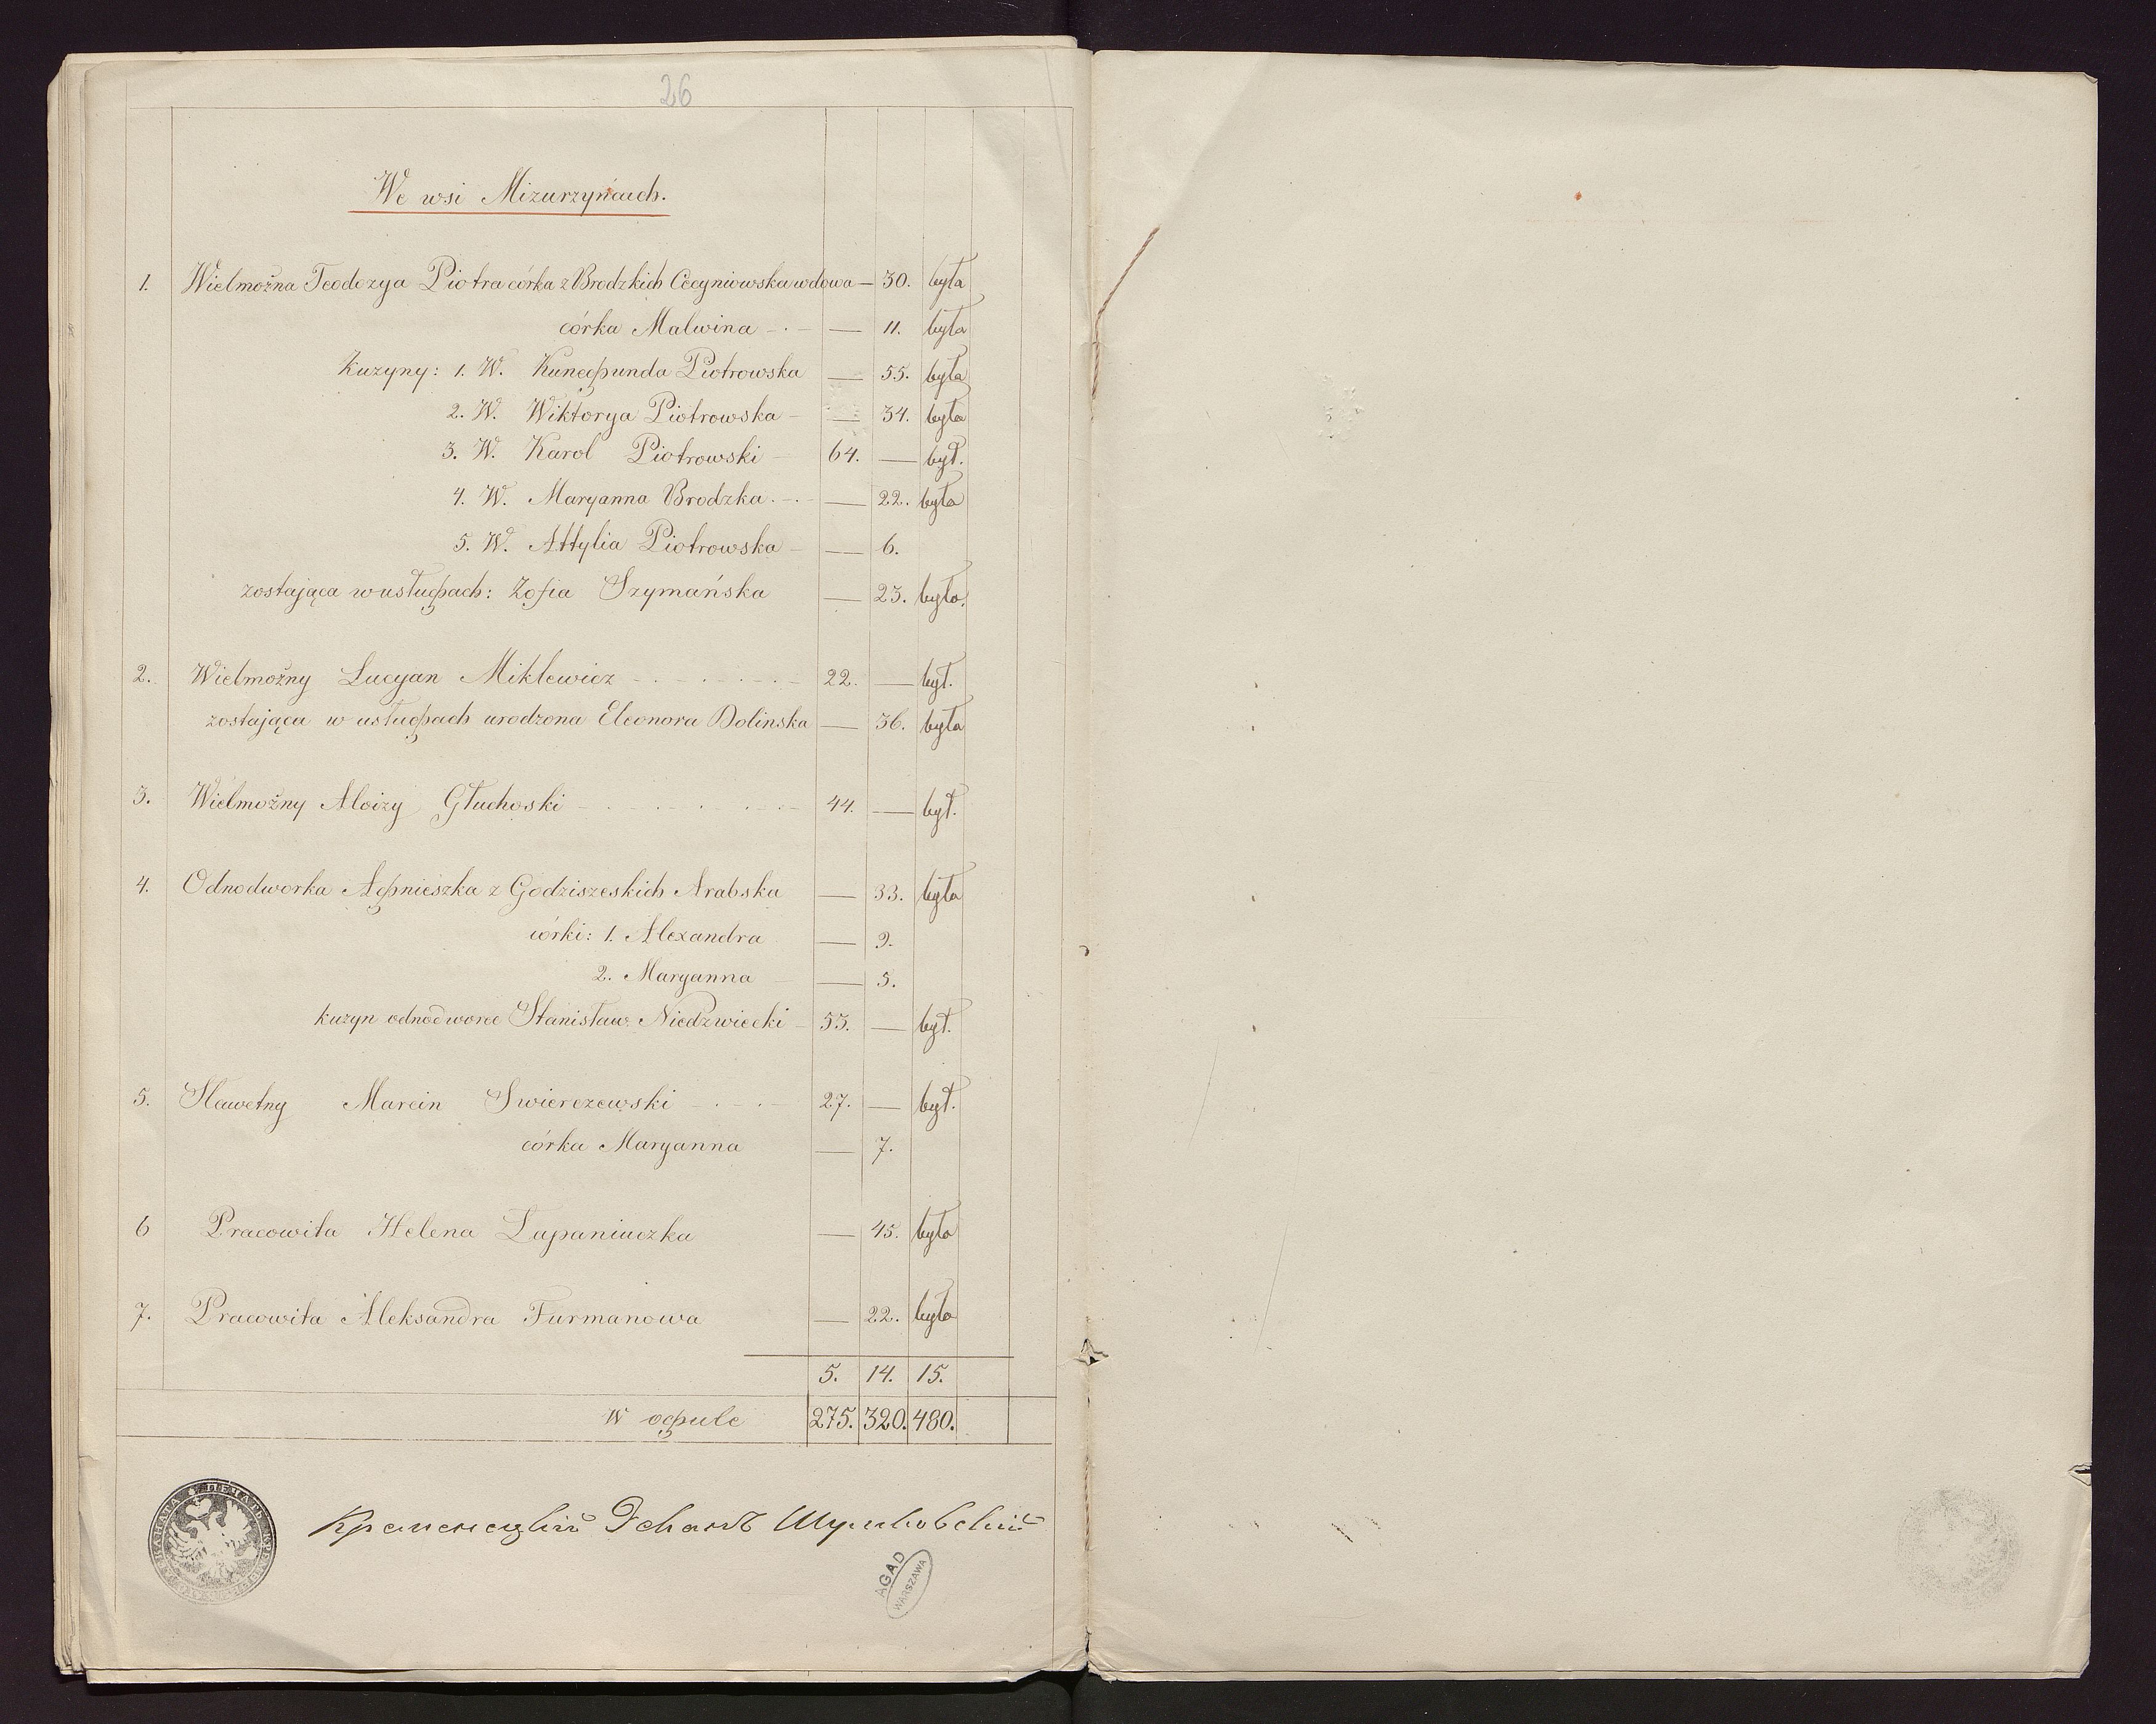 26
We wsi Mizurzyńcach.
1. Wielmożna Teodozya Piotra córka z Brodzkich Cecyniowska wdowa — 30. była
córka Malwina — 11. była
Kuzyny: 1. W. Kunegunda Piotrowska — 55. była
2. W. Wiktorya Piotrowska — 34. była
3. W. Karol Piotrowski 64. — był.
4. W. Maryanna Brodzka — 22. była
5. W. Attylia Piotrowska — 6.
zostająca w usługach: Zofia Szymańska — 23. była.
2. Wielmożny Lucyan Miklewicz 22. — był.
zostająca w usługach urodzona Eleonora Dolinska — 36. była
3. Wielmożny Aloizy Głuchoski 44. — był.
4. Odnodworka Agnieszka z Godziszeskich Arabska — 33. była
córki: 1. Alexandra — 9.
2. Maryanna — 5.
kuzyn odnodworec Stanisław Niedzwiecki 53. — był.
5. Sławetny Marcin Swierczewski 27. — był.
córka Maryanna — 7.
6 Pracowita Helena Łapaniuczka — 45. była
7. Pracowita Aleksandra Furmanowa — 22. była
5. 14. 15.
W ogule 275. 320. 480.
Деканъ
AGAD
WARSZAWA